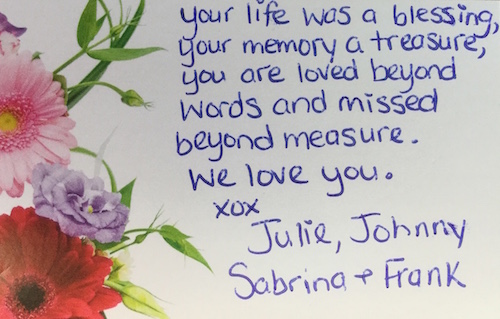 your life was a blessing,
your memory a treasure,
you are loved beyond
words and missed
beyond measure.
We love you.
xox
Julie, Johnny
Sabrina + Frank